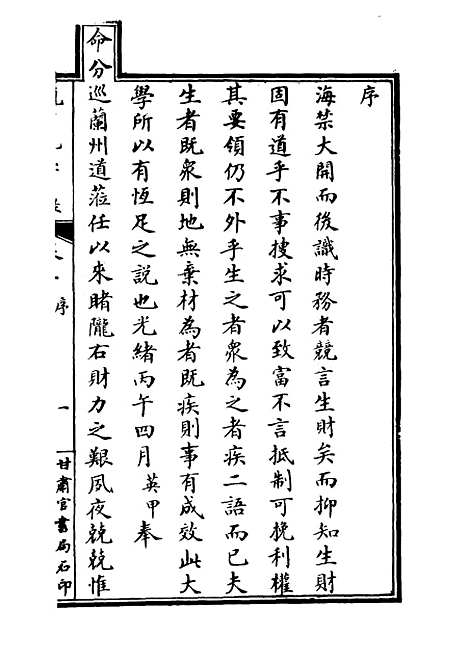 序
海禁大開而後識時務者競言生財矣而抑知生財
固有道乎不事搜求可以致富不言抵制可挽利權
其要領仍不外乎生之者衆為之者疾二語而已夫
生者既衆則地無棄材為者既疾則事有成效此大
學所以有恆足之說也光緒丙午四月英甲奉
命分巡蘭州道蒞任以來睹隴右財力之艱夙夜兢兢惟
序
一
甘肅官書局石印